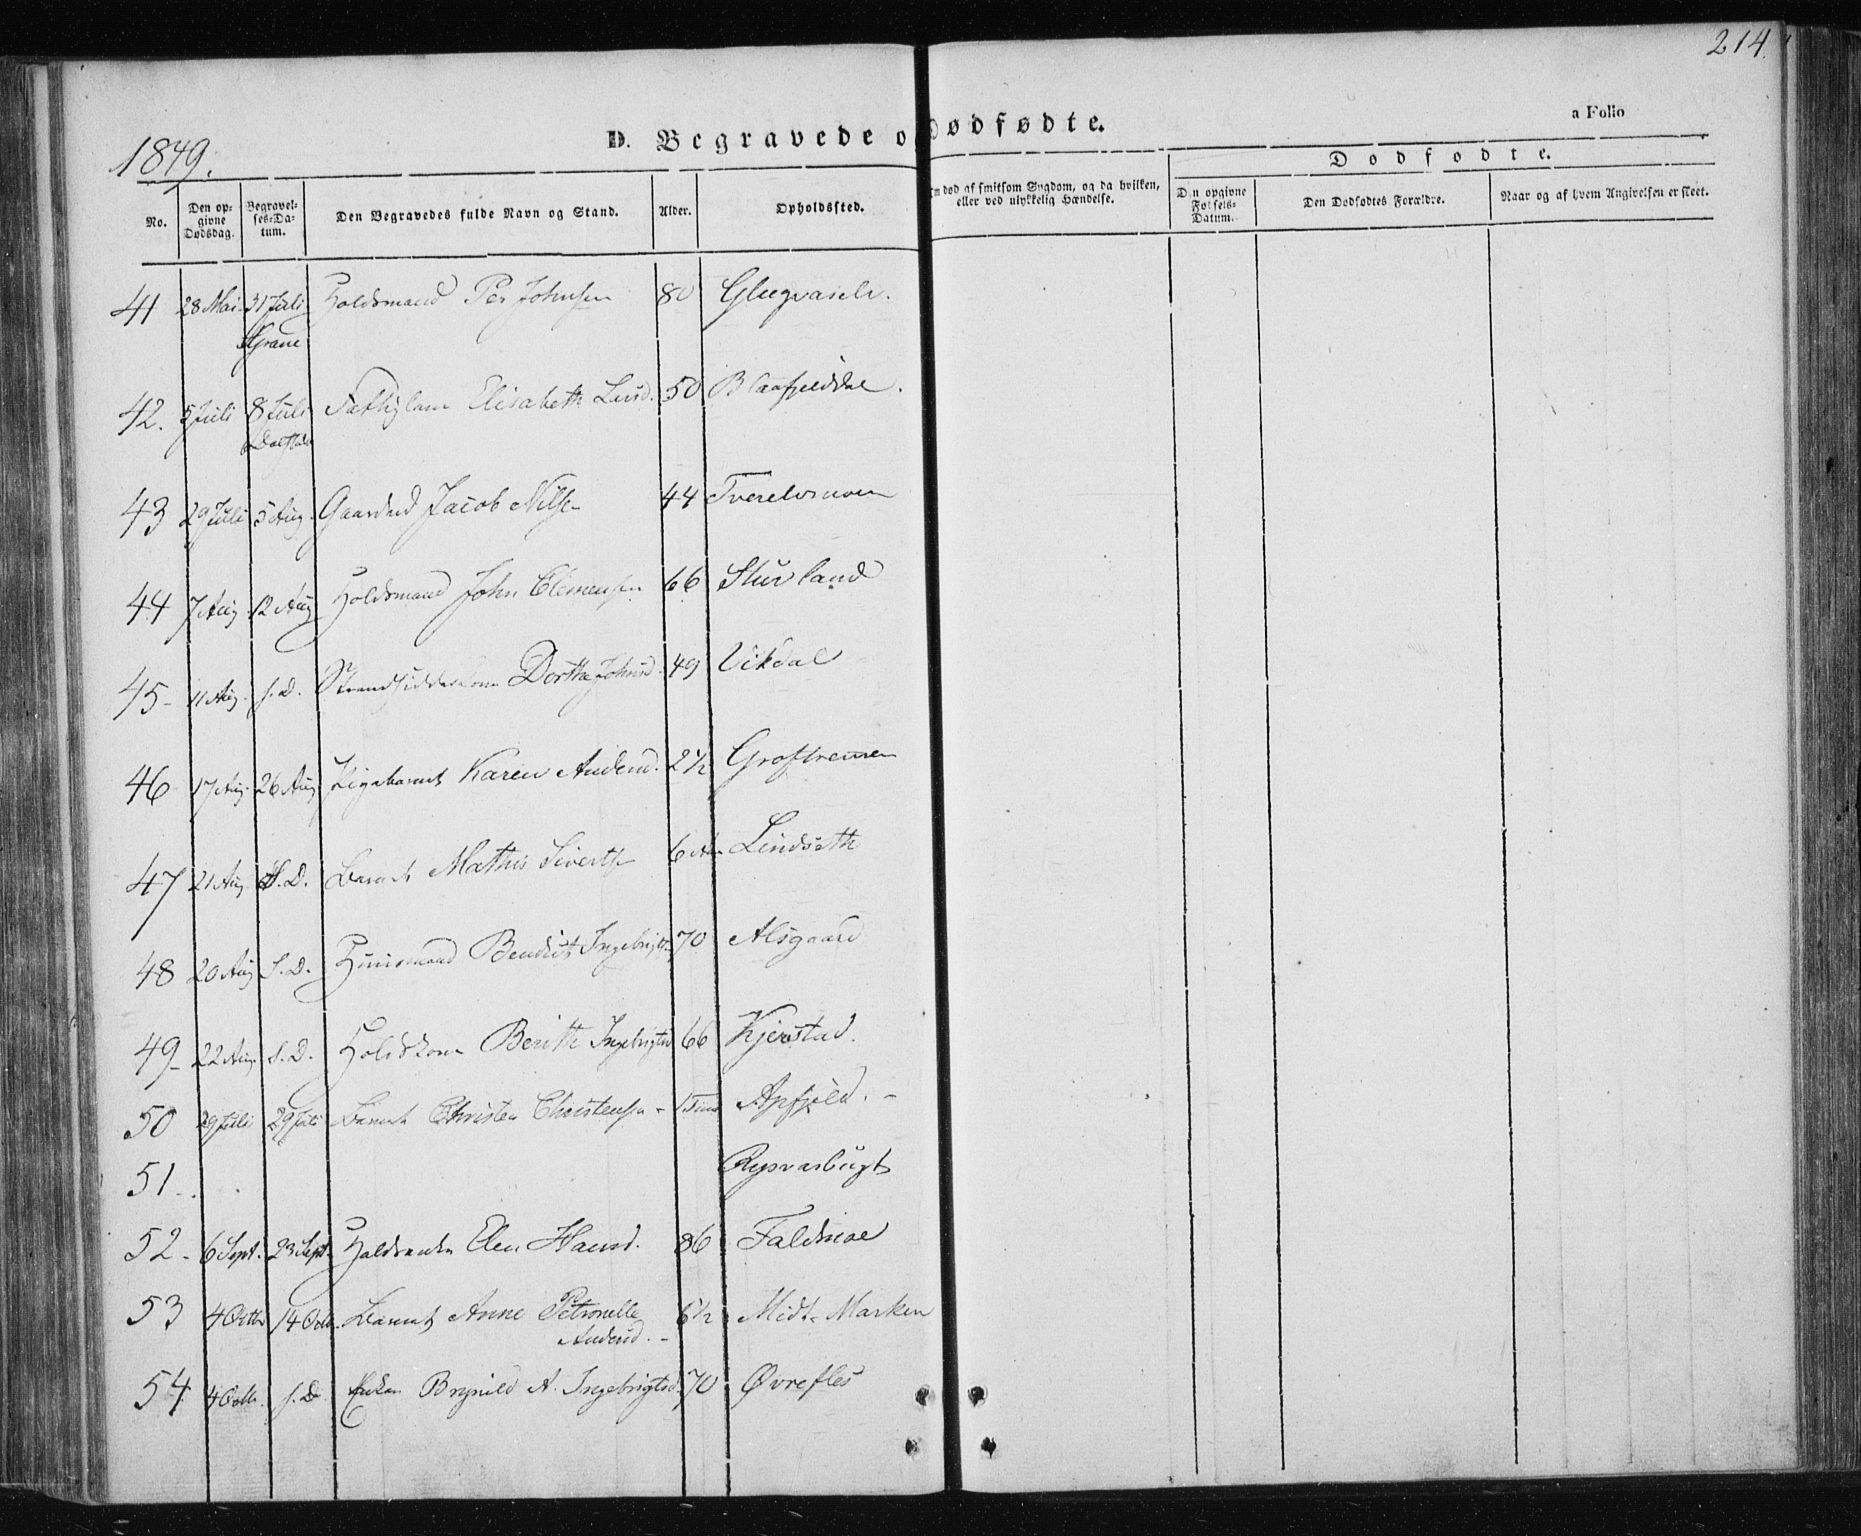 214.
1849.
D. Begravede o dødfødte.
a Folio
No.
Den op-
givne
Dødsdag.
Begravel-
ses-Da-
tum.
Den Begravedes fulde Navn og Stand.
Alder.
Opholdssted.
død af smitsom Sygdom, og da hvilken,
eller ved ulykkelig Hændelse.
Dødfødte.
Den opgivne
Fødsels-
Datum.
Den Dødfødtes Forældre.
Naar og af hvem Angivelsen er skeet.
41 28 Mai 31 Juli Joldsmand Per Johnsen 80
Grane
42. 5 Juli 8 Juli Elisabeth Larsd. 50 Blaafjelddal.
43 29 Juli 5 Aug. Gaardmd Jacob Nilsen 44 Tverelvmoen
44 7 Aug. 12 Aug Holdsmand John Clemensen 66 Stuvland
45 11 Aug. s.D. Dorthe Johnsd. 49 Vikdal
46 17 Aug. 26 Aug Pigebarnet Karen Andersd. 2½
47 21 Aug. S.D. Barnet Mathis Sivertsen 6 Lindseth
48 20 Aug S.D. Huusmand Bendict Ingebrigts. 70 Alsgaard
49 22 Aug. S.D. Holdskone Berith Ingebrigtsd 66 Kjerstad.
50 29 Juli 29 Juli Barnet Christen Christensen 1 Time Apfjeld.
51
52 6 Sept. 23 Sept. Elen Hansd. 86
53 4 Octbr 14 Octb. Barnet Anne Petronelle 6½ Midt-Marken
Andersd.
54 4 Octb. s.D. Enken Brynild A. Ingebrigtsd. 70 Øvrefles